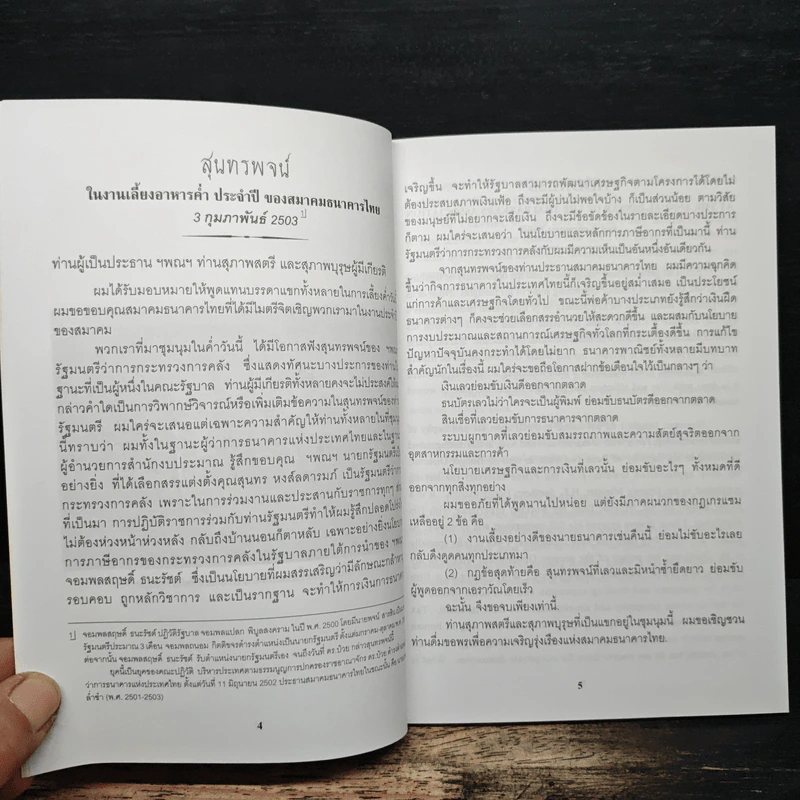 สุนทรพจน์
ในงานเลี้ยงอาหารค่ำ ประจำปี ของสมาคมธนาคารไทย
3 กุมภาพันธ์ 2503
ท่านผู้เป็นประธาน ฯพณฯ ท่านสุภาพสตรี และสุภาพบุรุษผู้มีเกียรติ
ผมได้รับมอบหมายให้พูดแทนบรรดาแขกทั้งหลายในการเลี้ยงค่ำวันนี้
ผมขอขอบคุณสมาคมธนาคารไทยที่ได้มีไมตรีจิตเชิญพวกเรามาในงานประจำปี
ของสมาคม
พวกเราที่มาชุมนุมในค่ำวันนี้ ได้มีโอกาสฟังสุนทรพจน์ของ ฯพณฯ
รัฐมนตรีว่าการกระทรวงการคลัง ซึ่งแสดงทัศนะบางประการของท่านใน
ฐานะที่เป็นผู้หนึ่งในคณะรัฐบาล ท่านผู้มีเกียรติทั้งหลายคงจะไม่ประสงค์ให้ผม
กล่าวคำใดเป็นการวิพากษ์วิจารณ์หรือเพิ่มเติมข้อความในสุนทรพจน์ของท่าน
รัฐมนตรี ผมใคร่จะเสนอแต่เฉพาะความสำคัญให้ท่านทั้งหลายในที่ชุมนุม
นี้ทราบว่า ผมทั้งในฐานะผู้ว่าการธนาคารแห่งประเทศไทยและในฐานะ
ผู้อำนวยการสำนักงบประมาณ รู้สึกขอบคุณ ฯพณฯ นายกรัฐมนตรีเป็น
อย่างยิ่ง ที่ได้เลือกสรรแต่งตั้งคุณสุนทร หงส์ลดารมภ์ เป็นรัฐมนตรีว่าการ
กระทรวงการคลัง เพราะในการร่วมงานและประสานกับราชการทุกๆ
ที่เป็นมา การปฏิบัติราชการร่วมกับท่านรัฐมนตรีทำให้ผมรู้สึกปลอดโปร่ง
ไม่ต้องห่วงหน้าห่วงหลัง กลับถึงบ้านนอนก็ตาหลับ เฉพาะอย่างยิ่งนโยบาย
การภาษีอากรของกระทรวงการคลังในรัฐบาลภายใต้การนำของ ฯพณฯ
จอมพลสฤษดิ์ ธนะรัชต์ ซึ่งเป็นนโยบายที่ผมสรรเสริญว่ามีลักษณะกล้าหาญ
รอบคอบ ถูกหลักวิชาการ และเป็นรากฐาน จะทำให้การเงินการธนาคาร
จอมพลสฤษดิ์ ธนะรัชต์ ปฏิวัติรัฐบาล จอมพลแปลก พิบูลสงคราม ในปี พ.ศ. 2500 โดยมีนายพจน์ สารสิน เป็น
รัฐมนตรีประมาณ 3 เดือน จอมพลถนอม กิตติขจรดำรงตำแหน่งเป็นนายกรัฐมนตรี ตั้งแต่มกราคม-ตุลาคม พ.ศ.
ต่อจากนั้น จอมพลสฤษดิ์ ธนะรัชต์ รับตำแหน่งนายกรัฐมนตรีเอง จนถึงวันที่ ดร.ป๋วย กล่าวสุนทรพจน์นี้
ยุคนี้เป็นยุคของคณะปฏิวัติ บริหารประเทศตามธรรมนูญการปกครองราชอาณาจักร ดร.ป๋วย
ว่าการธนาคารแห่งประเทศไทย ตั้งแต่วันที่ 11 มิถุนายน 2502 ประธานสมาคมธนาคารไทยในขณะนั้น คือ
ล่ำซำ (พ.ศ. 2501-2503)
4
เจริญขึ้น จะทำให้รัฐบาลสามารถพัฒนาเศรษฐกิจตามโครงการได้โดยไม่
ต้องประสบสภาพเงินเฟ้อ ถึงจะมีผู้บ่นไม่พอใจบ้าง ก็เป็นส่วนน้อย ตามวิสัย
ของมนุษย์ที่ไม่อยากจะเสียเงิน ถึงจะมีข้อขัดข้องในรายละเอียดบางประการ
ก็ตาม ผมใคร่จะเสนอว่า ในนโยบายและหลักการภาษีอากรที่เป็นมานี้ ท่าน
รัฐมนตรีว่าการกระทรวงการคลังกับผมมีความเห็นเป็นอันหนึ่งอันเดียวกัน
จากสุนทรพจน์ของท่านประธานสมาคมธนาคารไทย ผมมีความฉุกคิด
ขึ้นว่ากิจการธนาคารในประเทศไทยนี้ก็เจริญขึ้นอยู่สม่ำเสมอ เป็นประโยชน์
แก่การค้าและเศรษฐกิจโดยทั่วไป ขณะนี้พ่อค้าบางประเภทยังรู้สึกว่าเงินฝืด
ธนาคารต่างๆ ก็คงจะช่วยเลือกสรรอำนวยให้สะดวกดีขึ้น และผสมกับนโยบาย
การงบประมาณและสถานการณ์เศรษฐกิจทั่วโลกที่กระเตื้องดีขึ้น การแก้ไข
ปัญหาปัจจุบันคงกระทำได้โดยไม่ยาก ธนาคารพาณิชย์ทั้งหลายมีบทบาท
สำคัญนักในเรื่องนี้ ผมใคร่จะขอถือโอกาสฝากข้อเตือนใจไว้เป็นกลางๆ ว่า
เงินเลวย่อมขับเงินดีออกจากตลาด
ธนบัตรเลวไม่ว่าใครจะเป็นผู้พิมพ์ ย่อมขับธนบัตรดีออกจากตลาด
สินเชื่อที่เลวย่อมขับการธนาคารจากตลาด
ระบบผูกขาดที่เลวย่อมขับสมรรถภาพและความสัตย์สุจริตออกจาก
อุตสาหกรรมและการค้า
นโยบายเศรษฐกิจและการเงินที่เลวนั้น ย่อมขับอะไรๆ ทั้งหมดที่ดี
ออกจากทุกสิ่งทุกอย่าง
ผมขออภัยที่ได้พูดนานไปหน่อย แต่ยังมีภาคผนวกของกฎเกรแชม
เหลืออยู่ 2 ข้อ คือ
(1) งานเลี้ยงอย่างดีของนายธนาคารเช่นคืนนี้ ย่อมไม่ขับอะไรเลย
กลับดึงดูดคนทุกประเภทมา
(2) กฎข้อสุดท้ายคือ สุนทรพจน์ที่เลวและมิหนำซ้ำยืดยาว ย่อมขับ
ผู้พูดออกจากเอราวัณโดยเร็ว
ฉะนั้น จึงขอจบเพียงเท่านี้.
ท่านสุภาพสตรีและสุภาพบุรุษที่เป็นแขกอยู่ในชุมนุมนี้ ผมขอเชิญชวน
ท่านดื่มอวยพรเพื่อความเจริญรุ่งเรืองแห่งสมาคมธนาคารไทย.
5